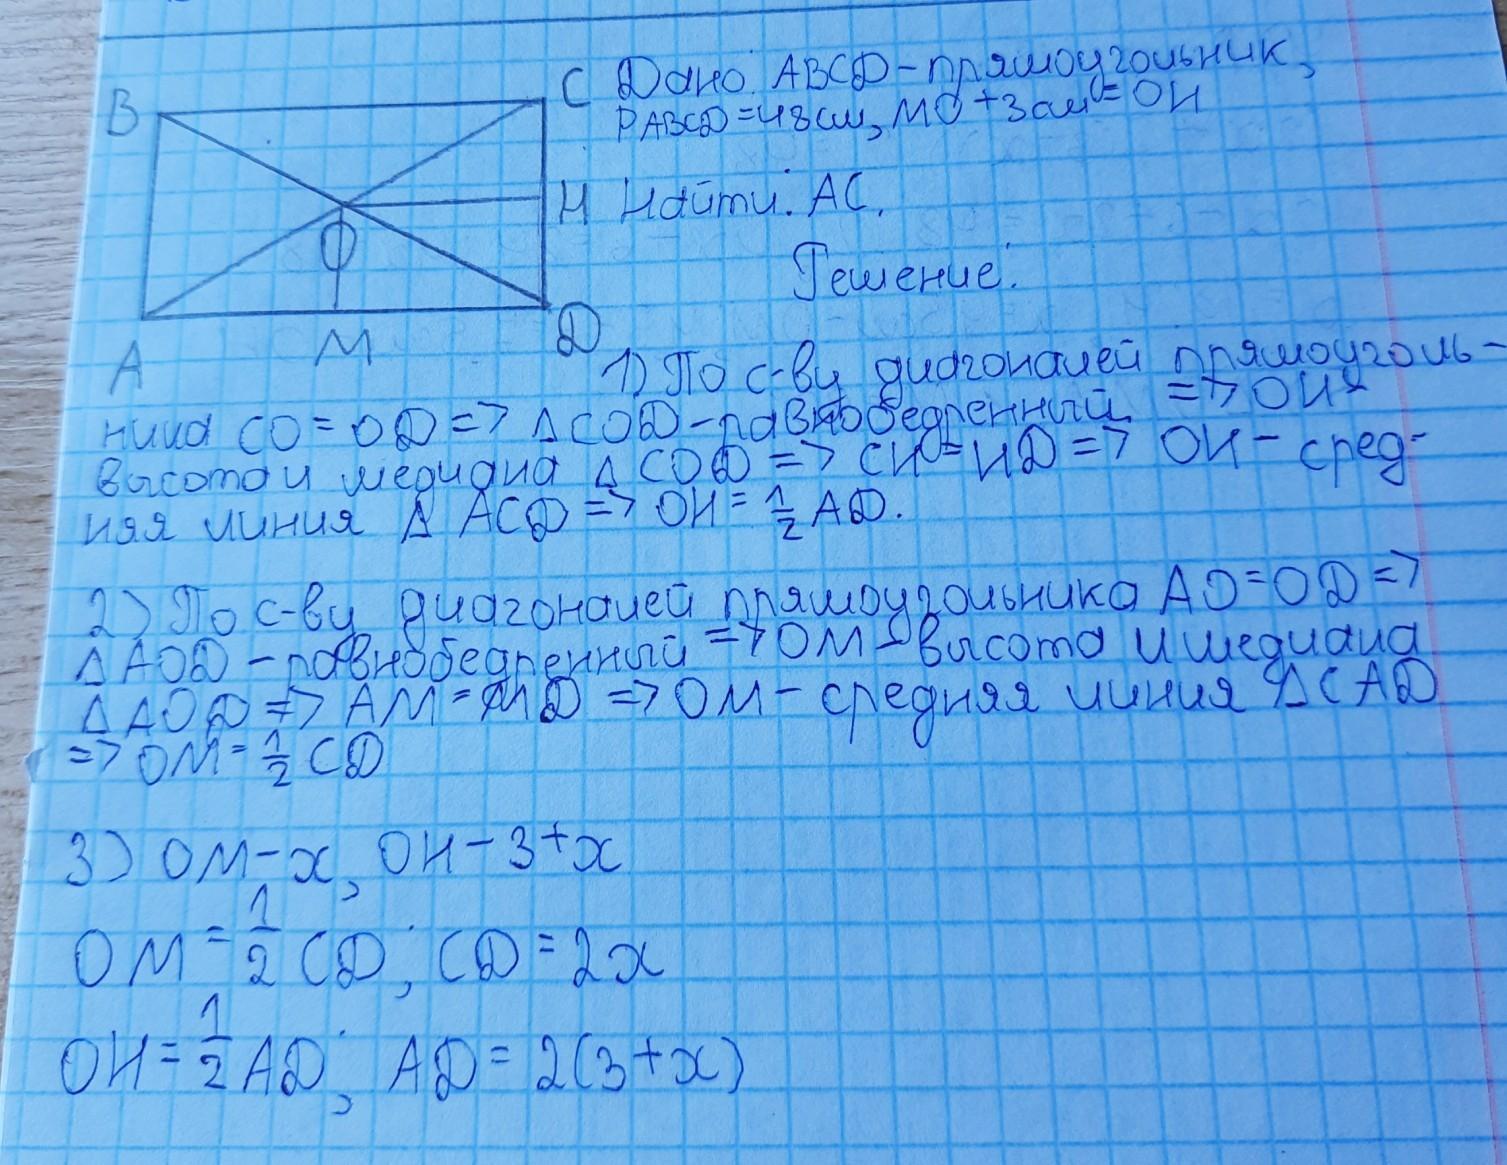 B
C Дано: ABCD - прямоугольник,
PABCD = 48 см, MO + 3 см = OH
H Найти: AC.
O
Решение:
A
M
D
1) По с-ву диагоналей прямоуголь-
ника CO = OD => △COD - равнобедренный => OH -
высота и медиана △ COD => CH = HD => OH - сред-
няя линия △ ACD => OH = 1/2 AD.
2) По с-ву диагоналей прямоугольника AO = OD =>
△AOD - равнобедренный => OM - высота и медиана
△ AOD => AM = MD => OM - средняя линия △CAD
=> OM = 1/2 CD
3) OM - x, OH - 3 + x
OM = 1/2 CD; CD = 2x
OH = 1/2 AD; AD = 2(3 + x)